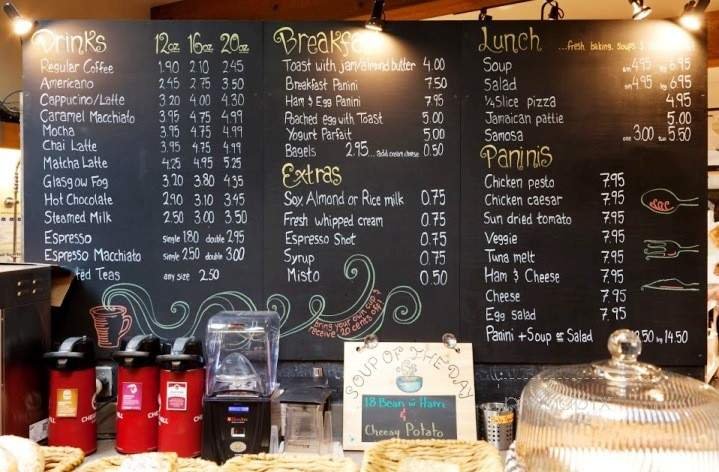 Drinks 12oz 16oz 20oz
Regular Coffee 1.90 2.10 2.45
Americano 2.45 2.75 3.50
Cappucino/Latte 3.20 4.00 4.30
Caramel Macchiato 3.95 4.75 4.99
Mocha 3.95 4.75 4.99
Chai Latte 3.95 4.75 4.99
Matcha Latte 4.25 4.95 5.25
Glasgow Fog 3.20 3.80 4.35
Hot Chocolate 2.90 3.10 3.45
Steamed Milk 2.50 3.00 3.50
Espresso single 1.80 double 2.95
Espresso Macchiato single 2.50 double 3.00
Teas any size 2.50
Breakfast
Toast with jam/almond butter 4.00
Breakfast Panini 7.50
Ham & Egg Panini 7.95
Poached egg with Toast 5.00
Yogurt Parfait 5.00
Bagels 2.95 ...add cream cheese 0.50
Extras
Soy, Almond or Rice milk 0.75
Fresh whipped cream 0.75
Espresso Shot 0.75
Syrup 0.75
Misto 0.50
bring your own cup &
receive 20 cents off!
Lunch ...fresh baking, soups &
Soup sm 4.95 lg 6.95
Salad sm 4.95 lg 6.95
1/4 Slice pizza 4.95
Jamaican pattie 5.00
Samosa one 3.00 two 5.50
Paninis
Chicken pesto 7.95
Chicken caesar 7.95
Sun dried tomato 7.95
Veggie 7.95
Tuna melt 7.95
Ham & Cheese 7.95
Cheese 7.95
Egg salad 7.95
Panini + Soup or Salad 12.50 lg 14.50
SOUP OF THE DAY
18 Bean w Ham
&
Cheesy Potato